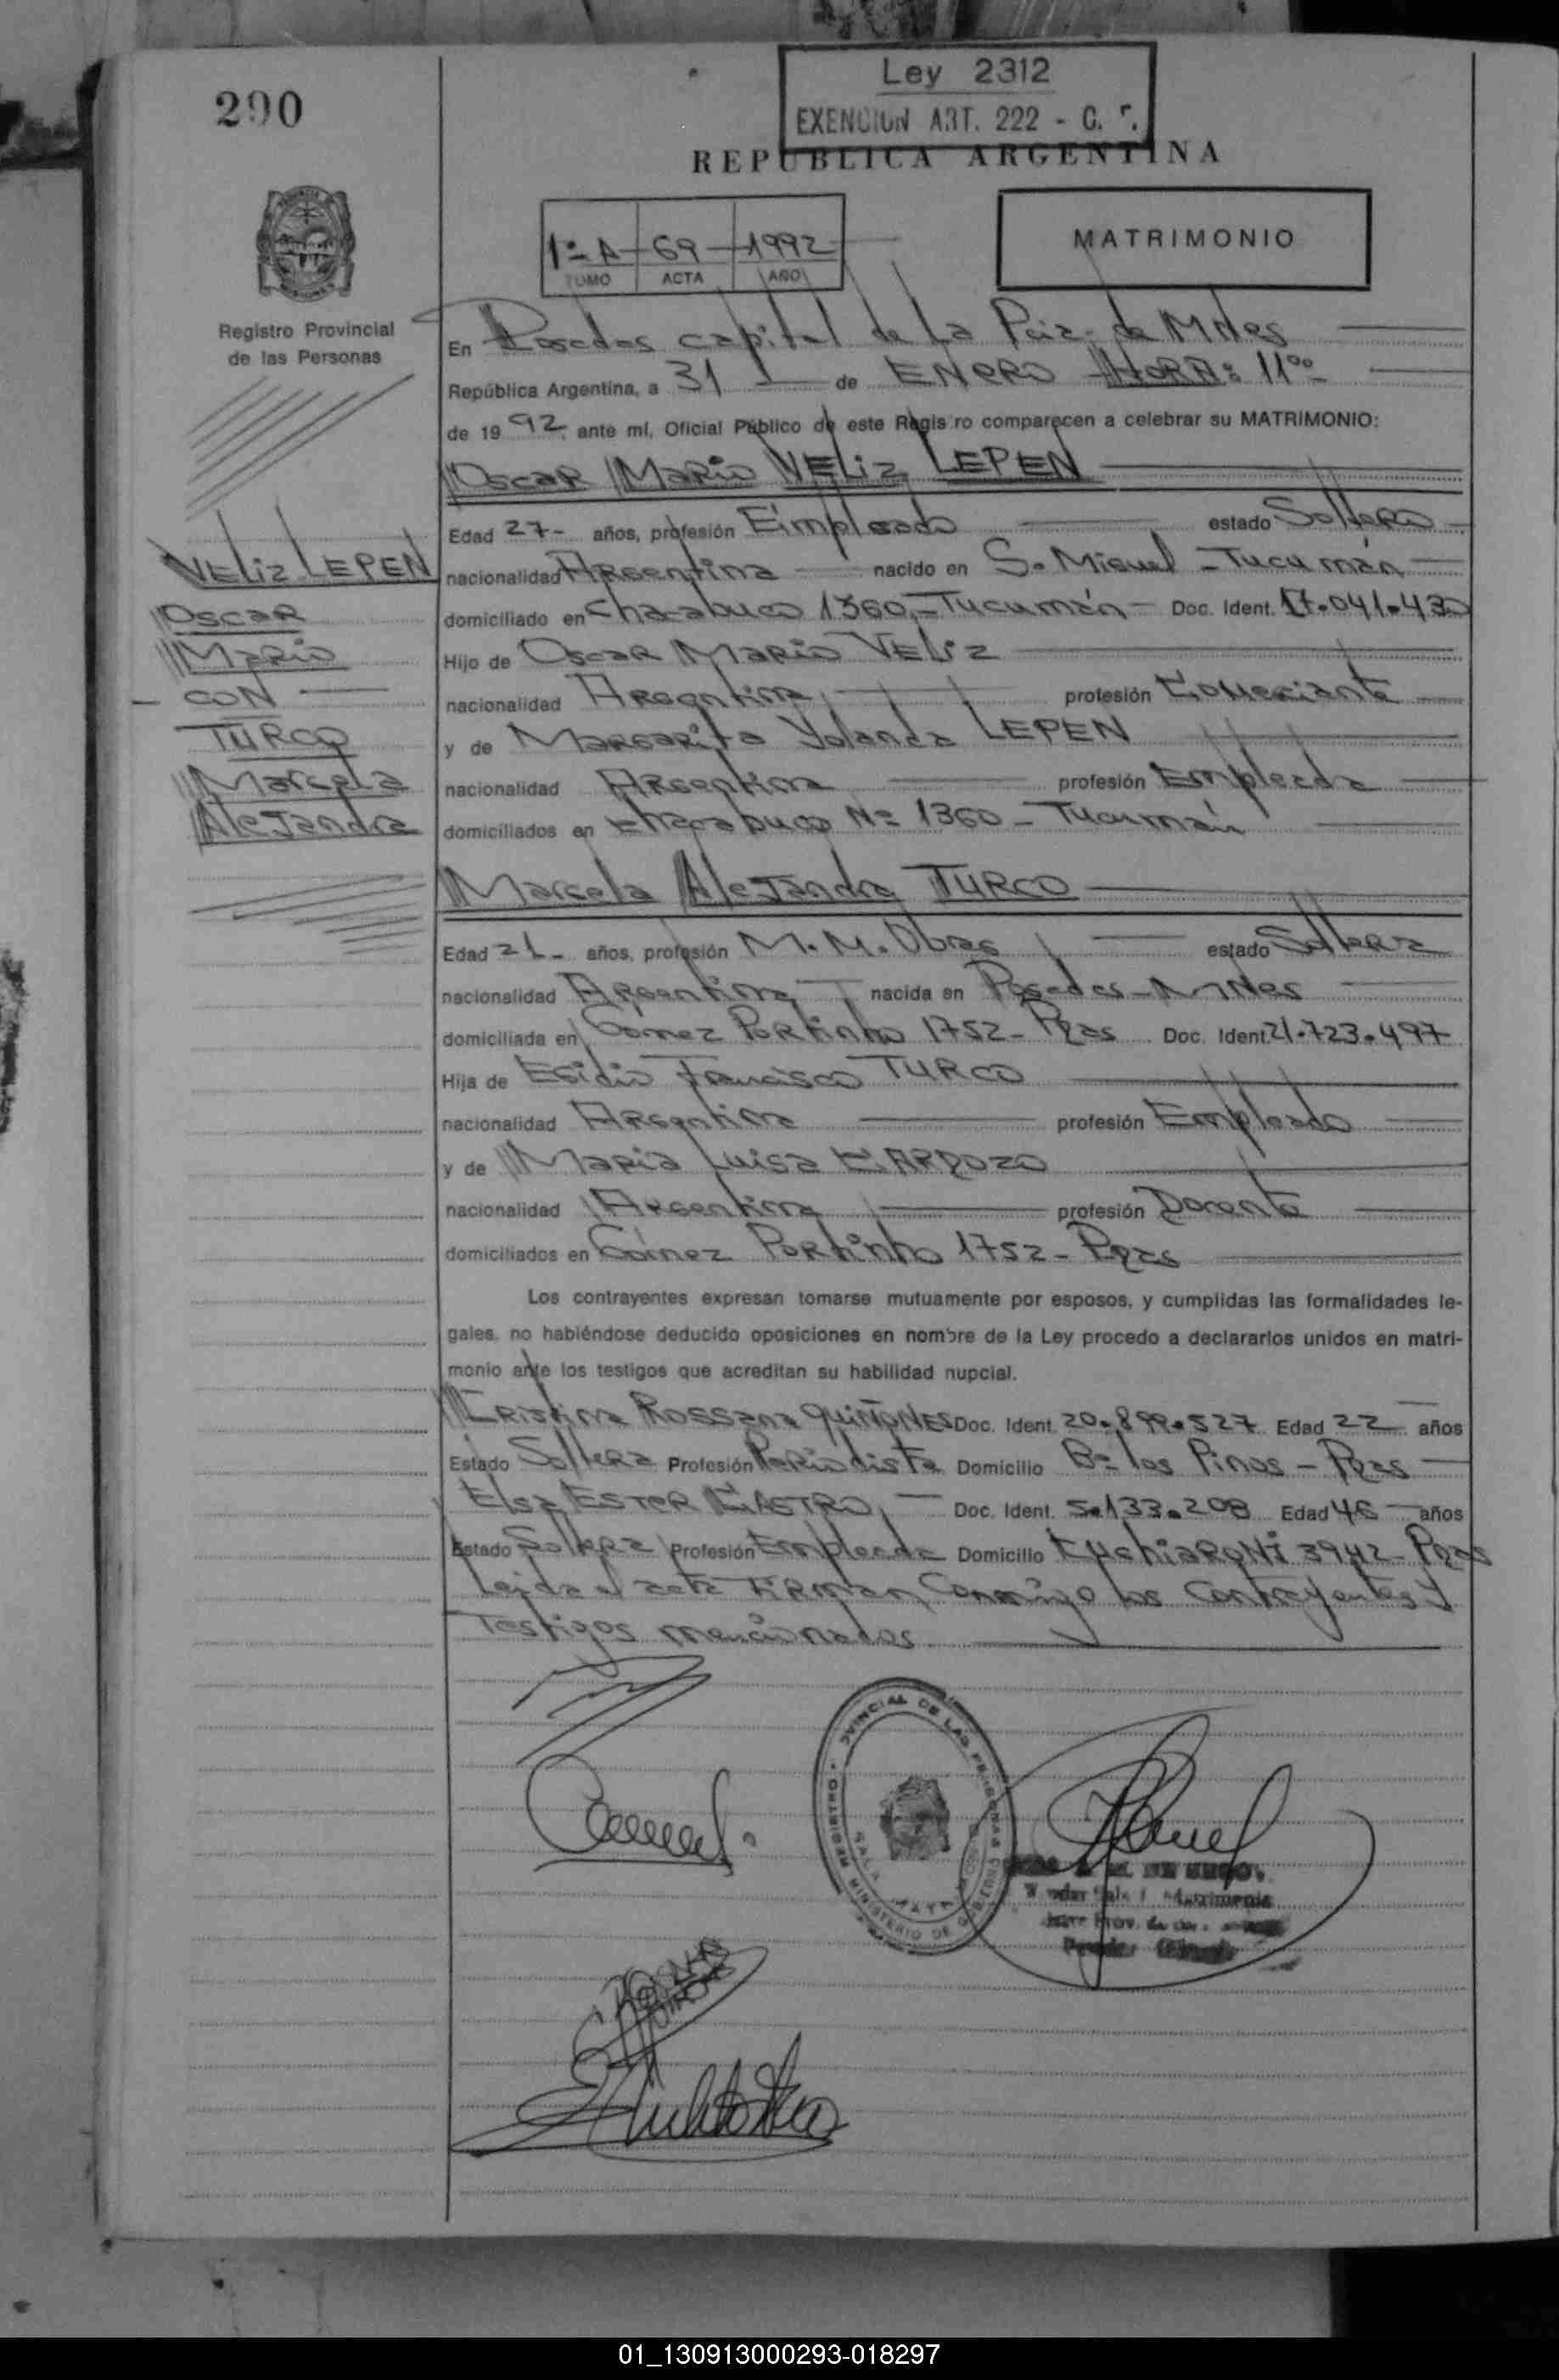 290
Ley 2312
EXENCION ART. 222 - C.
REPUBLICA ARGENTINA
1º A 69 1992
TOMO ACTA AÑO
MATRIMONIO
Registro Provincial
de las Personas
En Posadas capital de La Pcia. de Mnes
República Argentina, a 31 de ENERO HORA: 11ºº
de 1992 ante mí, Oficial Público de este Registro comparecen a celebrar su MATRIMONIO:
Oscar Mario VELiz LEPEN
Edad 27 - años, profesión Empleado estado Soltero
VELiz LEPEN
Oscar
Mario
CON
TURCO
Marcela
AleJandra
nacionalidad Argentina nacido en S. Miguel - Tucumán
domiciliado en Chacabuco 1360 - Tucumán - Doc. Ident. 17.041.430
Hijo de Oscar Mario VELiz
nacionalidad Argentina profesión Comerciante
y de Margarita Yolanda LEPEN
nacionalidad Argentina profesión Empleada
domiciliados en Chacabuco Nº 1360 - Tucumán
Marcela AleJandra TURCO
Edad 21 - años, profesión M. M. Obras estado Soltera
nacionalidad Argentina nacida en Posadas - Mnes
domiciliada en Gómez Portinho 1752 - Pdas Doc. Ident. 21.723.497
Hija de Egidio Francisco TURCO
nacionalidad Argentina profesión Empleado
y de Maria Luisa CARDOZO
nacionalidad Argentina profesión Docente
domiciliados en Gómez Portinho 1752 - Pdas
Los contrayentes expresan tomarse mutuamente por esposos, y cumplidas las formalidades le-
gales, no habiéndose deducido oposiciones en nombre de la Ley procedo a declararlos unidos en matri-
monio ante los testigos que acreditan su habilidad nupcial.
Cristina Rossana QUIÑONES Doc. Ident. 20.899.527 Edad 22 años
Estado Soltera Profesión Periodista Domicilio Bº los Pinos - Pdas
Elsa ESTER CASTRO Doc. Ident. 5.133.208 Edad 46 años
Estado Soltera Profesión Empleada Domicilio 3942 - Pdas
Leida el acta FIRMAN Conmigo los Contrayentes y
Testigos mencionados
REGISTRO PROVINCIAL DE LAS PERSONAS
MINISTERIO DE GOBIERNO
01_130913000293-018297